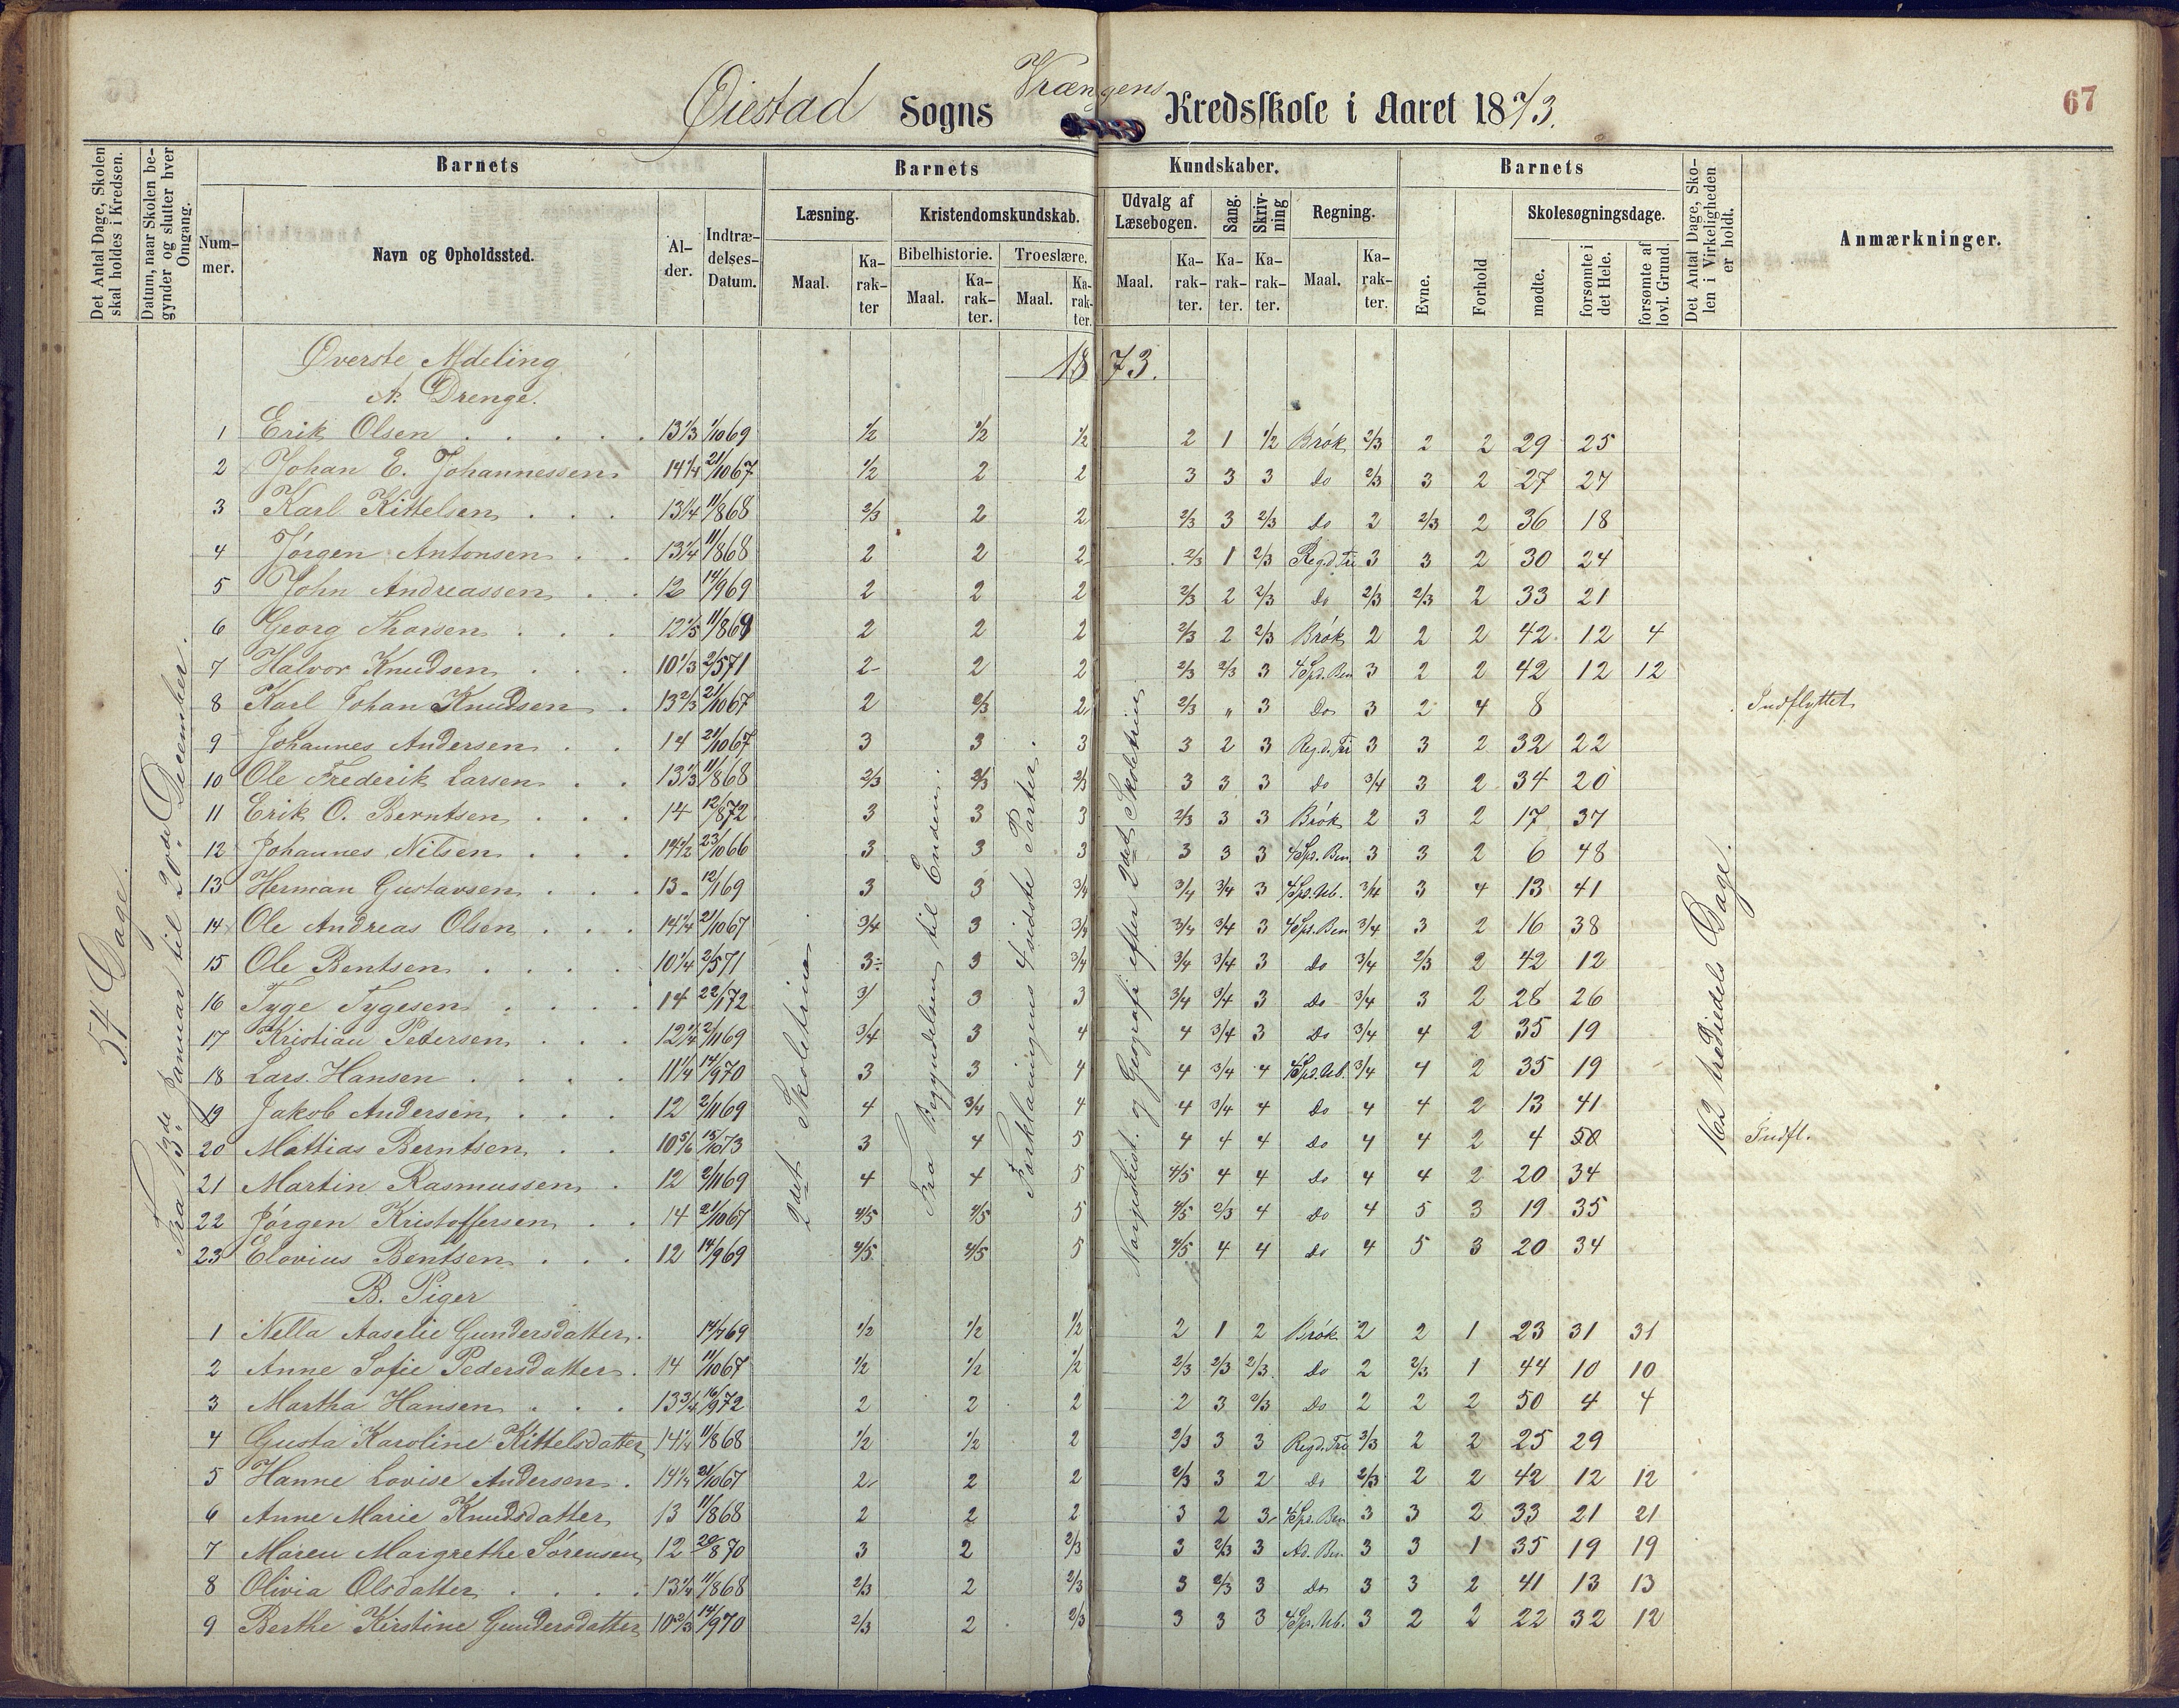 Øiestad Sogns Vrængens Kredsskole i Aaret 1873.
67
Det Antal Dage, Skolen skal holdes i Kredsen.
Datum, naar Skolen begynder og slutter hver Omgang.
Barnets
Nummer.
Navn og Opholdssted.
Alder.
Indtrædelses-Datum.
Barnets Kundskaber.
Læsning.
Maal.
Karakter
Kristendomskundskab.
Bibelhistorie.
Maal.
Karakter.
Troeslære.
Maal.
Karakter.
Udvalg af Læsebogen.
Maal.
Karakter.
Sang.
Karakter.
Skrivning
Karakter.
Regning.
Maal.
Karakter.
Barnets
Evne.
Forhold
Skolesøgningsdage.
mødte.
forsømte i det Hele.
forsømte af lovl. Grund.
Det Antal Dage, Skolen i Virkeligheden er holdt.
Anmærkninger.
54 Dage.
Fra 13de Januar til 20de December.
2det Skoletrin.
Fra Begyndelsen til Enden.
Forklaringens 4 sidste Parter.
Norgeshist. og Geografi efter 2det Skoletrin.
162 trediedels Dage.
Øverste Afdeling
1873.
A. Drenge.
1 Erik Olsen 13 1/3 1/10 69 1/2 1/2 1/2 2 1 1/2 Brók 2/3 2 2 29 25
2 Johan E. Johannessen 14 1/4 21/10 67 1/2 2 2 3 3 3 do 2/3 3 2 27 27
3 Karl Kittelsen 13 1/4 11/8 68 2/3 2 2 2/3 3 2/3 do 2 2/3 2 36 18
4 Jørgen Antonsen 13 1/4 11/8 68 2 2 2 2/3 1 2/3 Reg.d.Tri 3 3 2 30 24
5 John Andreassen 12 14/9 69 2 2 2 2/3 2 2/3 do 2/3 2/3 2 33 21
6 Georg Thorsen 12 1/5 11/8 69 2 2 2 2/3 2 2/3 Brók 2 2 2 42 12 4
7 Halvor Knudsen 10 1/3 2/5 71 2 2 2 2/3 2/3 3 4 Sp. Ben 3 2 2 42 12 12
8 Karl Johan Knudsen 13 2/3 21/10 67 2 2/3 2 2/3 " 3 Do 3 2 4 8 Indflyttet
9 Johannes Andersen 14 21/10 67 3 3 3 3 2 3 Reg.d.Tri 3 3 2 32 22
10 Ole Frederik Larsen 13 1/3 11/8 68 2/3 2/3 2/3 3 3 3 do 3/4 3 2 34 20
11 Erik O. Berntsen 14 12/8 72 3 3 3 2/3 3 3 Brók 2 3 2 17 37
12 Johannes Nilsen 14 1/2 23/10 66 3 3 3 3 3 3 4 Sp. Ben 3 3 2 6 48
13 Herman Gustavsen 13 12/1 69 3 3 3/4 3/4 3/4 3 4 Sp. Ub. 3/4 3 4 13 41
14 Ole Andreas Olsen 14 1/4 21/10 67 3/4 3 3/4 3/4 3/4 3 4 Sp. Ben 3/4 3 2 16 38
15 Ole Bentsen 10 1/4 2/5 71 3 3 3/4 3/4 3/4 3 do 3/4 2/3 2 42 12
16 Tyge Tygesen 14 22/1 72 3/ 3 3 3/4 3/4 3 do 3/4 3 2 28 26
17 Kristian Pedersen 12 1/4 2/11 69 3/4 3 4 4 3/4 3 Do 3/4 4 2 35 19
18 Lars Hansen 11 1/4 14/9 70 3 3 4 4 3/4 4 4 Sp. Ub. 3/4 4 2 35 19
19 Jakob Andersen 12 2/11 69 4 3/4 4 4 3/4 4 do 4 4 2 13 41
20 Mattias Berntsen 10 5/6 15/10 73 3 4 5 4 4 4 do 4 4 2 4 50 Indfl.
21 Martin Rasmussen 12 2/11 69 4 4 5 4/5 4 4 do 4 4 2 20 34
22 Jórgen Kristoffersen 14 21/10 67 4/5 4/5 5 4/5 2/3 4 do 4 5 3 19 35
23 Elovius Bentsen 12 14/9 69 4/5 4/5 5 4/5 4 4 do 4 5 3 20 34
B. Piger
1 Nella Aaselie Gundersdatter 14/7 69 1/2 1/2 1/2 2 1 2 Brók 2 2 1 23 31 31
2 Anne Sofie Pedersdatter 14 11/10 67 1/2 1/2 1/2 2/3 2/3 2/3 do 2 2/3 1 44 10 10
3 Martha Hansen 13 3/4 16/9 72 2 2 2 2 3 2/3 Do 2 2 2 50 4 4
4 Gusta Karoline Kittelsdatter 14 1/4 11/8 68 1/2 1/2 2 2/3 3 3 Reg.d.Tri 2/3 2 2 25 29
5 Hanne Lovise Andersen 14 1/4 21/10 67 2 2 2 2/3 3 2 do 2/3 2 2 42 12 12
6 Anne Marie Knudsdatter 13 11/8 68 2 2 2 3 2 3 4 Sp. Ben 3 3 2 33 21 21
7 Maren Margrethe Sórensen 12 20/8 70 3 2 2/3 3 2/3 3 Ad. Ben 3 3 1 35 19 19
8 Olivia Olsdatter 13 1/4 11/8 68 2/3 2 2/3 3 2/3 3 Do 3 3 2 41 13 13
9 Berthe Kirstine Gundersdatter 10 2/3 14/9 70 2/3 2 2/3 3 3 3 4 Sp. Ub. 3 2 2 22 32 12